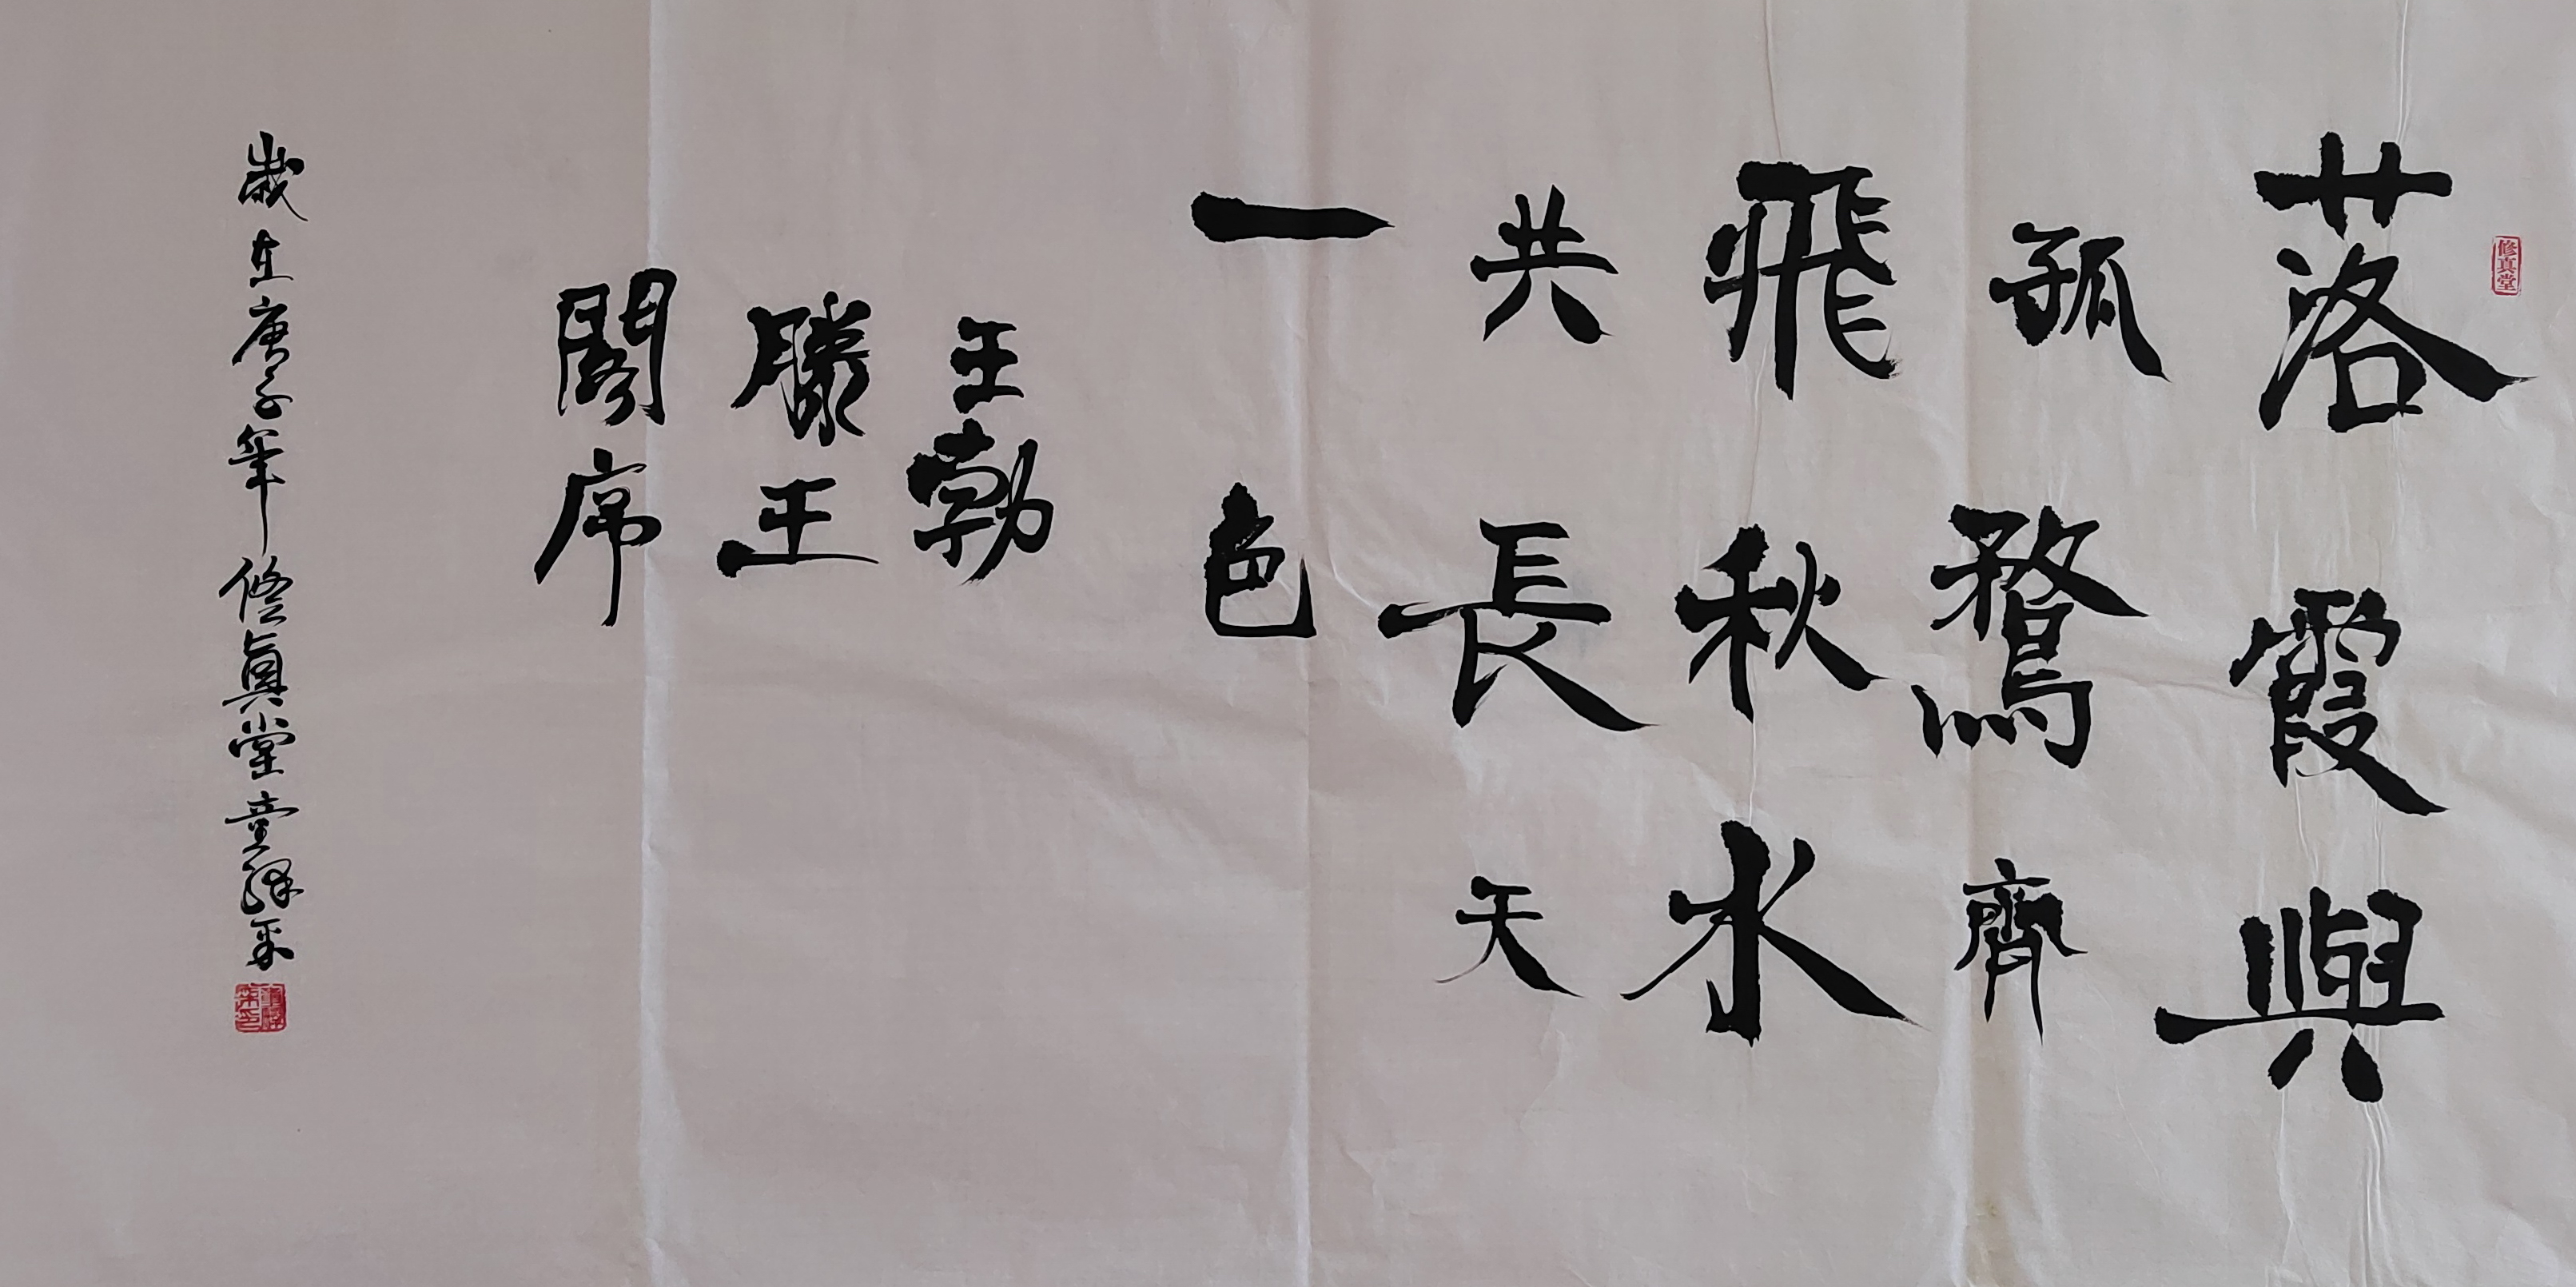 修真堂
落霞與
孤鶩齊
飛秋水
共長天
一色
王勃
滕王
閣序
歲在庚子年修真堂童繹采